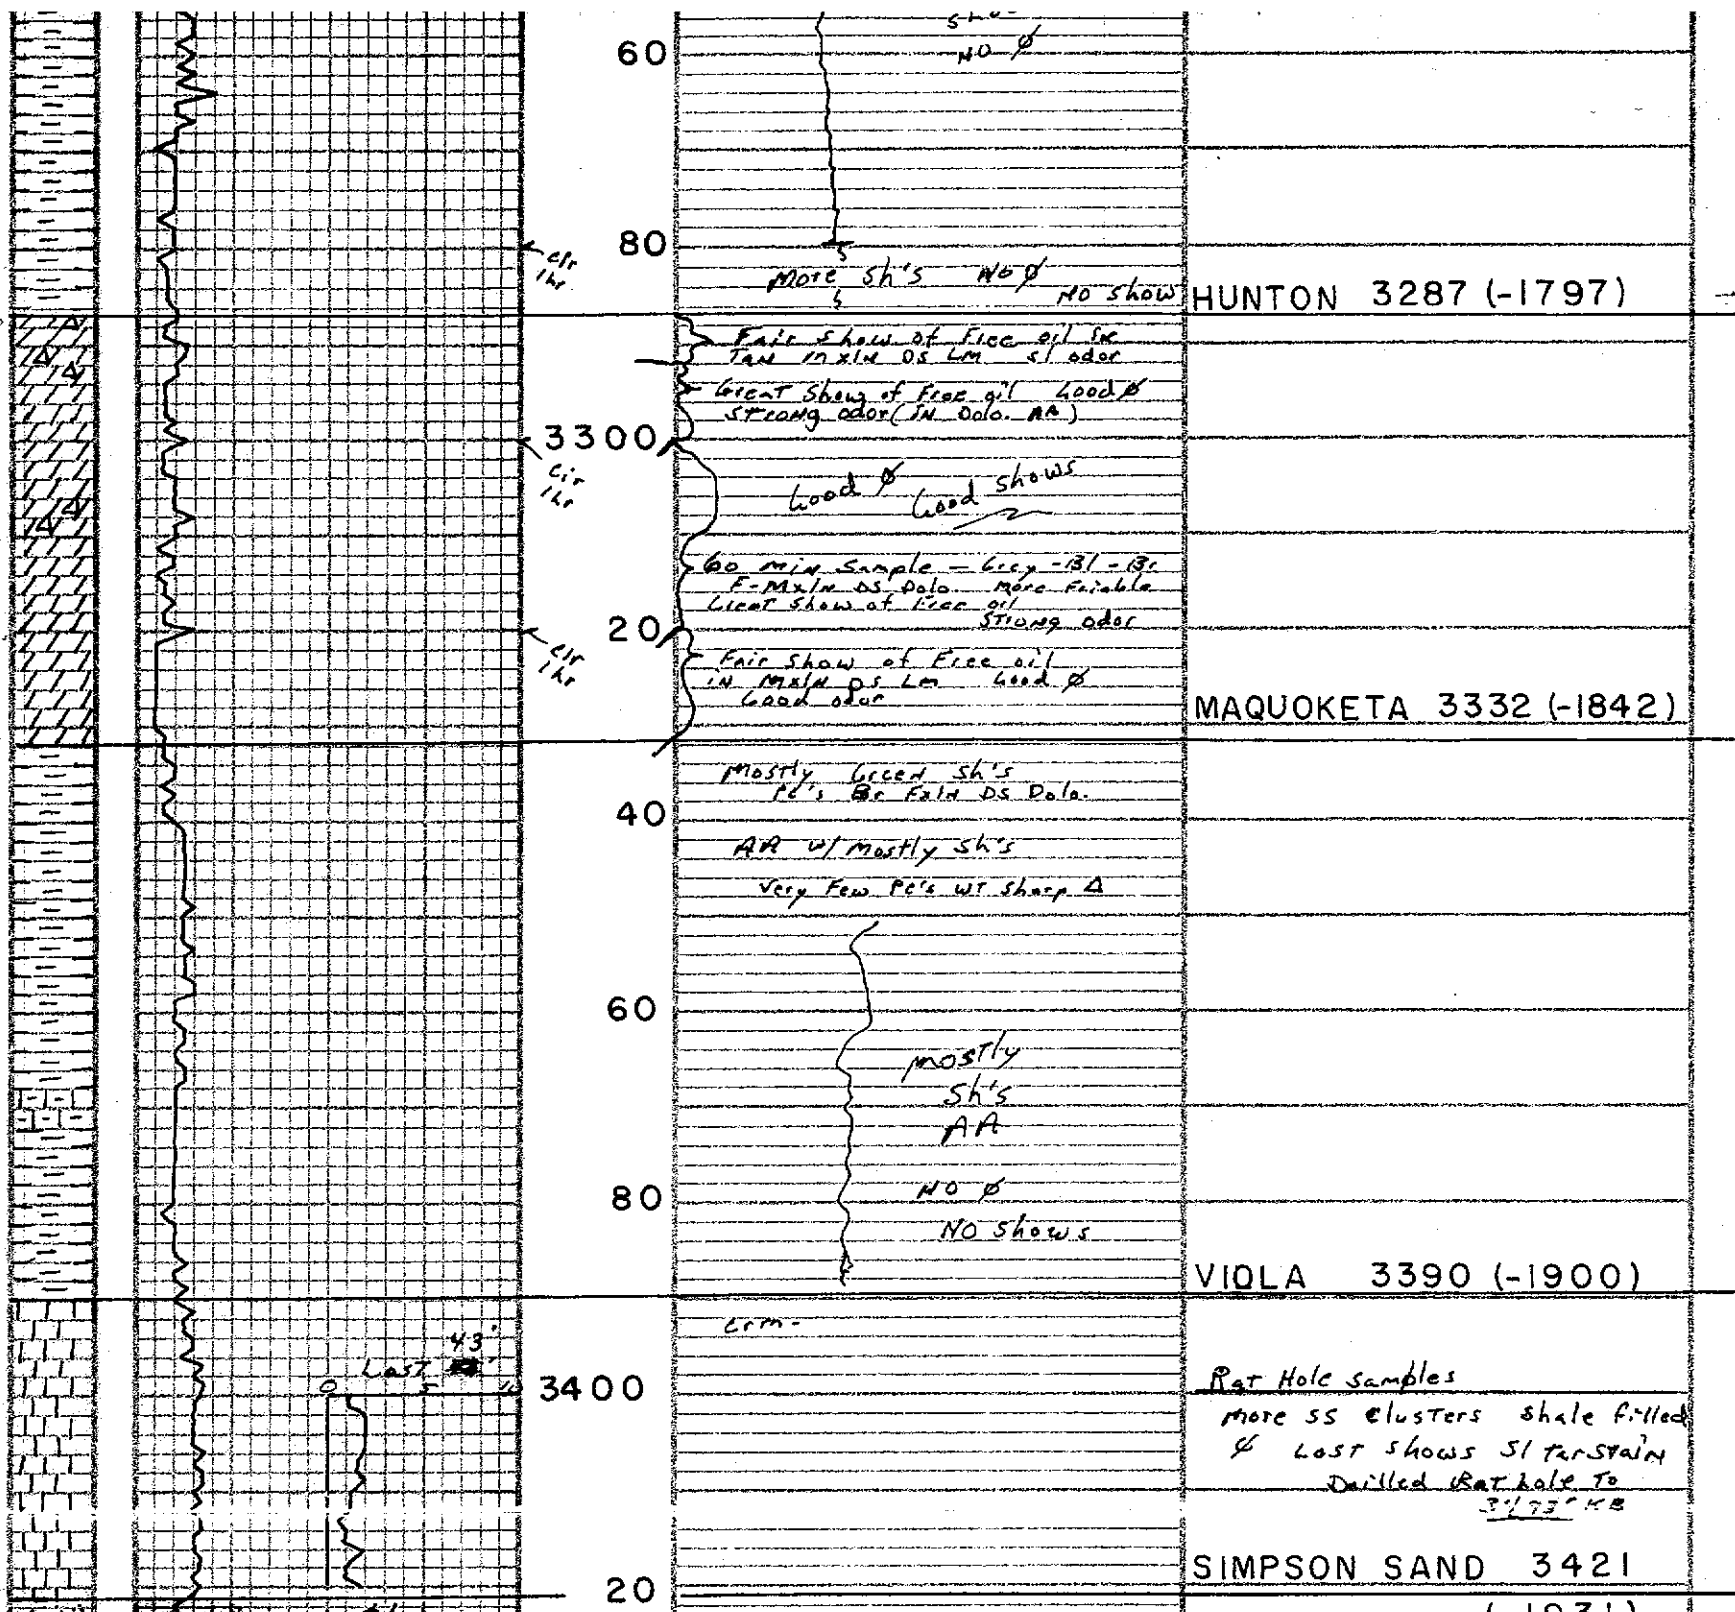 NO Ø
60
80
cir
1 hr
More sh's NO Ø
NO Show
HUNTON 3287 (-1797)
Fair Show of Free oil in
TAN mxln DS Lm sl odor
Great Show of Free oil Good Ø
STRONG odor (IN Dolo. AA)
3300
Cir
1 hr
Good Ø Good Shows
60 min Sample - Grey - Bl - Br
F-Mxln DS Dolo. More Friable
Great Show of Free oil
STRONG odor
20
cir
1 hr
Fair Show of Free oil
IN mxln DS Lm Good Ø
Good odor
MAQUOKETA 3332 (-1842)
Mostly Green Sh's
Pc's Br Fxln DS Dolo.
40
AA w/ Mostly Sh's
Very Few Pc's WT Sharp Δ
60
Mostly
Sh's
AA
80
NO Ø
NO Shows
VIOLA 3390 (-1900)
Crm-
43'
Last
0 5 10
3400
Rat Hole Samples
More SS Clusters Shale filled
Ø Lost Shows Sl Tarstain
Drilled Rat hole To
KB
SIMPSON SAND 3421
20
(-1931)